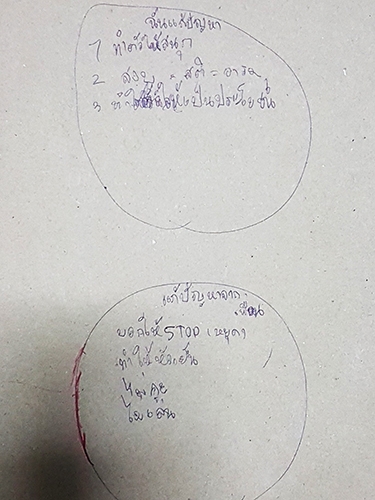 ฉันแก้ปัญหา
1 ทำตัวให้สนุก
2 สงบ สติ = อารม
3 ทำ ให้เป็นประโยชน์
แก้ปัญหาจาก
เพื่อน
บอกให้ STOP หยุด
ทำให้
ไม่คุย
ไม่เล่น